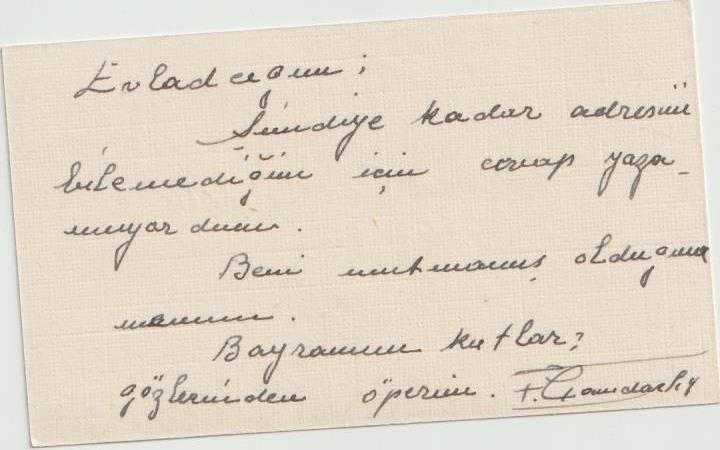 Evladcığım;
Şimdiye kadar adresini
bilemediğim için cevap yaza_
mıyordum.
Beni unutmamış olduğuna
memnun.
Bayramını kutlar;
gözlerinden öperim. F.